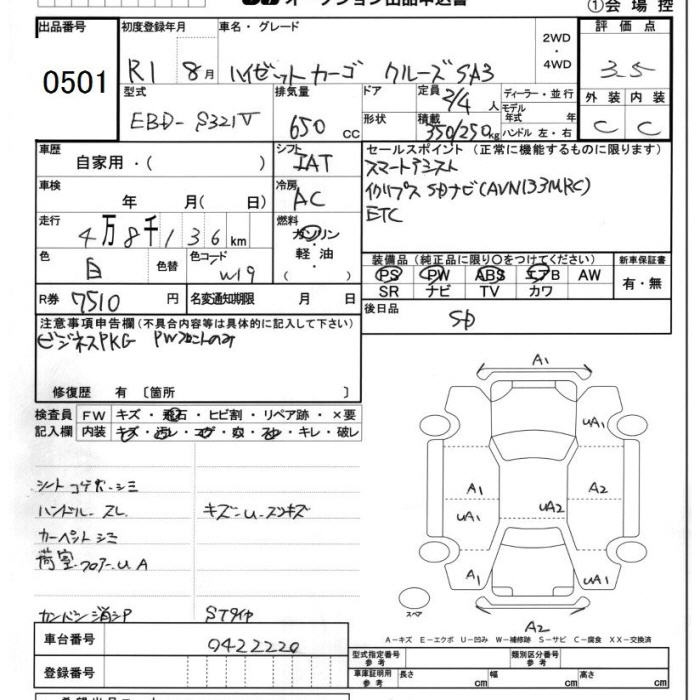 オークション出品申込書
①会場控
出品番号
0501
初度登録年月
R1 8月
車名・グレード
ハイゼットカーゴ クルーズSA3
2WD
・
4WD
評価点
3.5
型式
EBD-S321V
排気量
650cc
ドア
形状
定員
2/4人
積載
350/250kg
ディーラー・並行
モデル
年式 年
ハンドル 左・右
外装 内装
C C
車歴
自家用・( )
シフト
IAT
セールスポイント(正常に機能するものに限ります)
スマートアシスト
イクリプス SDナビ(AVN133MRC)
ETC
車検
年 月( 日)
冷房
AC
走行
4万8千136km
燃料
ガソリン
・
軽油
・
( )
色
白
色替
色コード
W19
装備品(純正品に限り○をつけてください)
PS PW ABS エアB AW
SR ナビ TV カワ
新車保証書
有・無
R券
7510円
名変通知期限 月 日
後日品
SD
注意事項申告欄(不具合内容等は具体的に記入して下さい)
ビジネスPKG PWフロントのみ
修復歴 有 〔箇所 〕
検査員
記入欄
FW キズ・飛石・ヒビ割・リペア跡・×要
内装 キズ・汚レ・コゲ・穴・スレ・キレ・破レ
シートコゲボ-シミ
ハンドル-スレ
キズ-U-スリキズ
カーペットシミ
荷室フロアーUA
カンバン消シP
STタイヤ
A1
UA1
A1
A2
UA1
UA2
A1
UA1
スペア
A2
A-キズ E-エクボ U-凹み W-補修跡 S-サビ C-腐食 XX-交換済
車台番号
0422220
登録番号
型式指定番号
参考
類別区分番号
参考
車庫証明用
参考
長さ cm
幅 cm
高さ cm